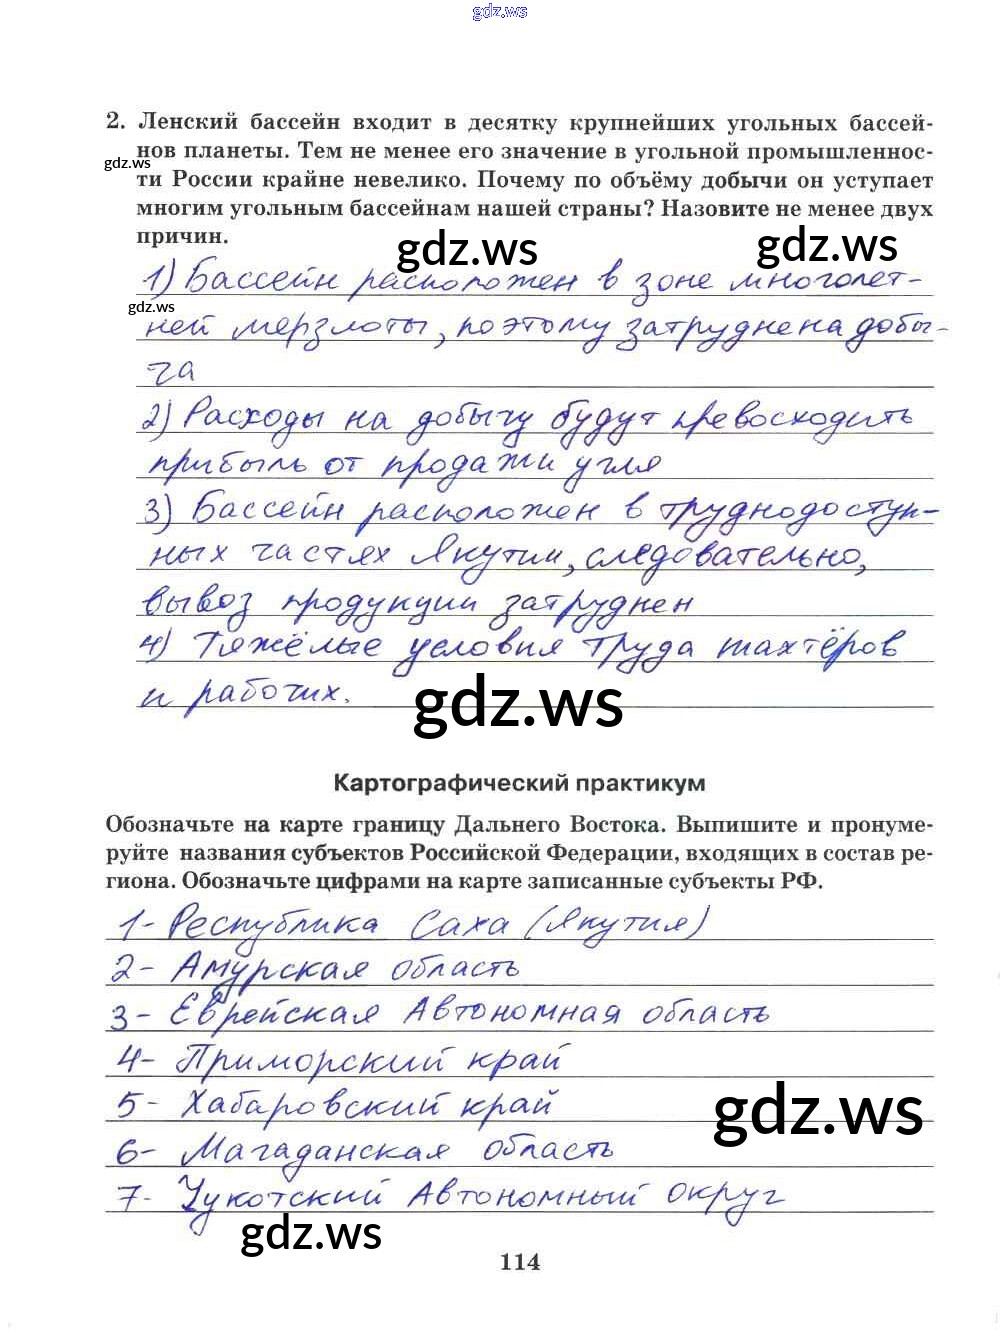 gdz.ws
2. Ленский бассейн входит в десятку крупнейших угольных бассей-
нов планеты. Тем не менее его значение в угольной промышленнос-
gdz.ws
ти России крайне невелико. Почему по объёму добычи он уступает
многим угольным бассейнам нашей страны? Назовите не менее двух
причин.
gdz.ws
gdz.ws
1) Бассейн расположен в зоне многолет-
gdz.ws
ней мерзлоты, поэтому затруднена добы-
ча
2) Расходы на добычу будут превосходить
прибыль от продажи угля
3) Бассейн расположен в труднодоступ-
ных частях Якутии, следовательно,
вывоз продукции затруднен
4) Тяжёлые условия труда шахтёров
и рабочих.
gdz.ws
Картографический практикум
Обозначьте на карте границу Дальнего Востока. Выпишите и пронуме-
руйте названия субъектов Российской Федерации, входящих в состав ре-
гиона. Обозначьте цифрами на карте записанные субъекты РФ.
1- Республика Саха (Якутия)
2- Амурская область
3- Еврейская Автономная область
4- Приморский край
5- Хабаровский край
gdz.ws
6- Магаданская область
7- Чукотский Автономный округ
gdz.ws
114